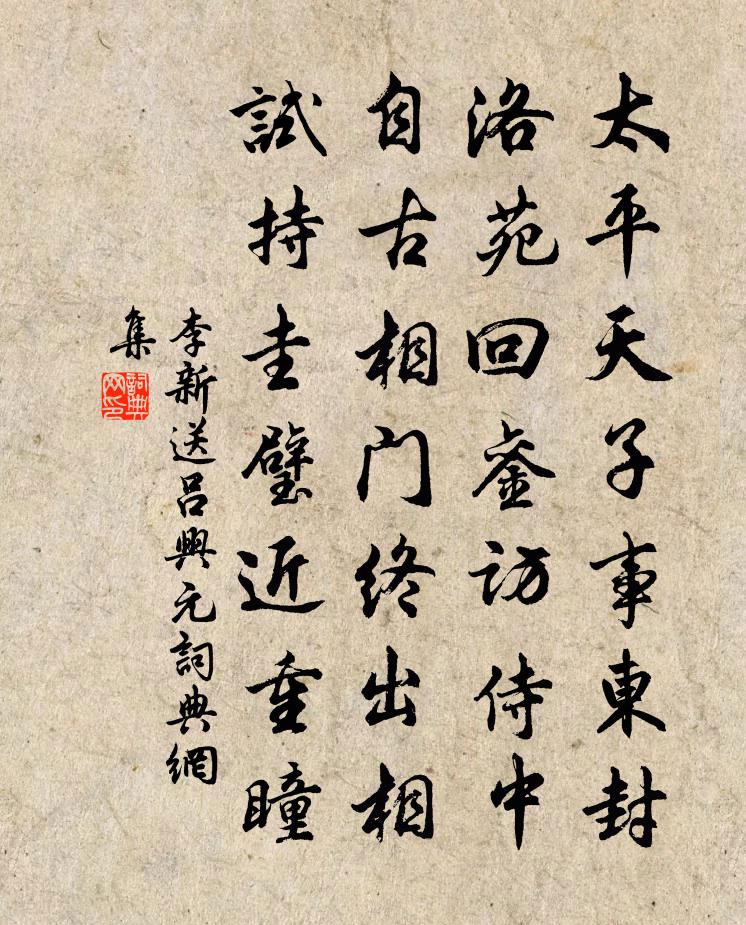 太平天子事東封
洛苑回銮訪侍中
自古相門終出相
試持圭璧近重瞳
李新送呂興元詞典網
集
詞典网印